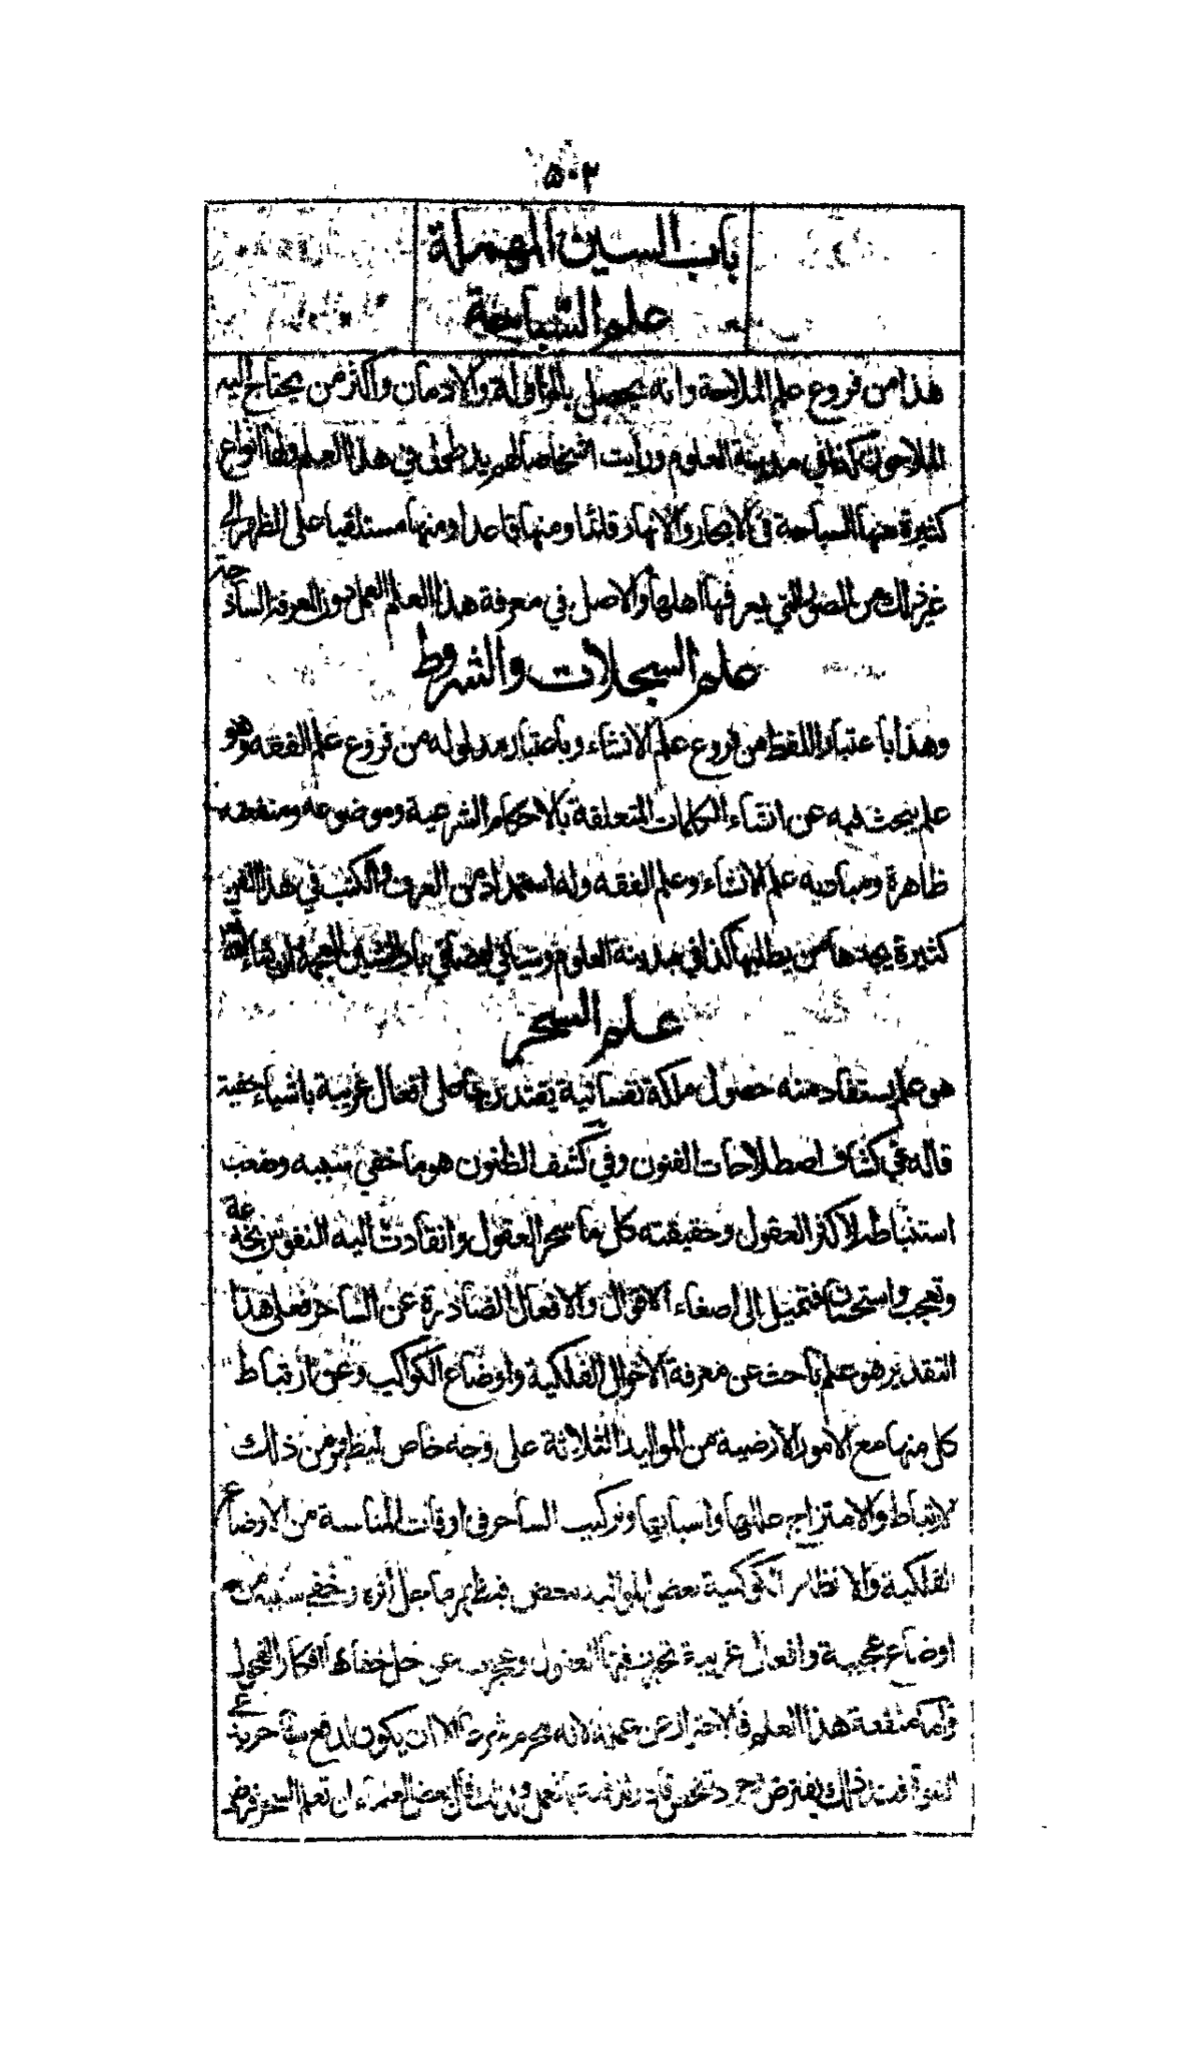 ٥٠٢
باب السين المهملة
علم السباحة
هذا من فروع علم الملاحة وانه يحصل بالمزاولة والادمان واكثر من يحتاج اليه
الملاحون كذا في مدينة العلوم ورأيت اشخاصا لهم يد طولى في هذا العلم ولها انواع
كثيرة منها السباحة في الابحار والانهار قائما ومنها قاعدا ومنها مستلقيا على الظهر الى
غير ذلك من الصور التي يعرفها اهلها والاصل في معرفة هذا العلم العمل دون المعرفة الساذجة
علم السجلات والشروط
وهذا باعتبار اللفظ من فروع علم الانشاء وباعتبار مدلوله من فروع علم الفقه وهو
علم يبحث فيه عن انشاء الكلمات المتعلقة بالاحكام الشرعية وموضوعه ومنفعته
ظاهرة ومباديه علم الانشاء وعلم الفقه وله استمداد من العرف والكتب في هذا الفن
كثيرة يجدها من يطلبها كذا في مدينة العلوم وسيأتي ايضا في باب الشين المعجمة ان شاء الله
علم السحر
هو علم يستفاد منه حصول ملكة نفسانية يقتدر بها على افعال غريبة باشياء خفية
قاله في كشاف اصطلاحات الفنون وفي كشف الظنون هو ما خفي سببه وصعب
استنباطه لاكثر العقول وحقيقته كل ما سحر العقول وانقادت اليه النفوس بخدعة
وتعجب واستحسان فتميل الى اصغاء الاقوال والافعال الصادرة عن الساحر فعلى هذا
التقدير هو علم باحث عن معرفة الاحوال الفلكية واوضاع الكواكب وعن ارتباط
كل منها مع الامور الارضية من المواليد الثلاثة على وجه خاص ليظهر من ذلك
الارتباط والامتزاج عللها واسبابها وتركيب الساحر في اوقات المناسبة من الاوضاع
الفلكية والانظار الكوكبية بعض المواليد ببعض فيظهر ما جل اثره وخفي سببه من
اوضاع عجيبة وافعال غريبة تحيرت فيها العقول وعجزت عن حل خفاها افكار الفحول
واما منفعة هذا العلم فالاحتراز عن عمله لانه محرم شرعا الا ان يكون لدفع ساحر يدعي
النبوة فعند ذلك يفترض وجود شخص قادر لدفعه بالعمل ولذلك قال بعض العلماء ان تعلم السحر فرض